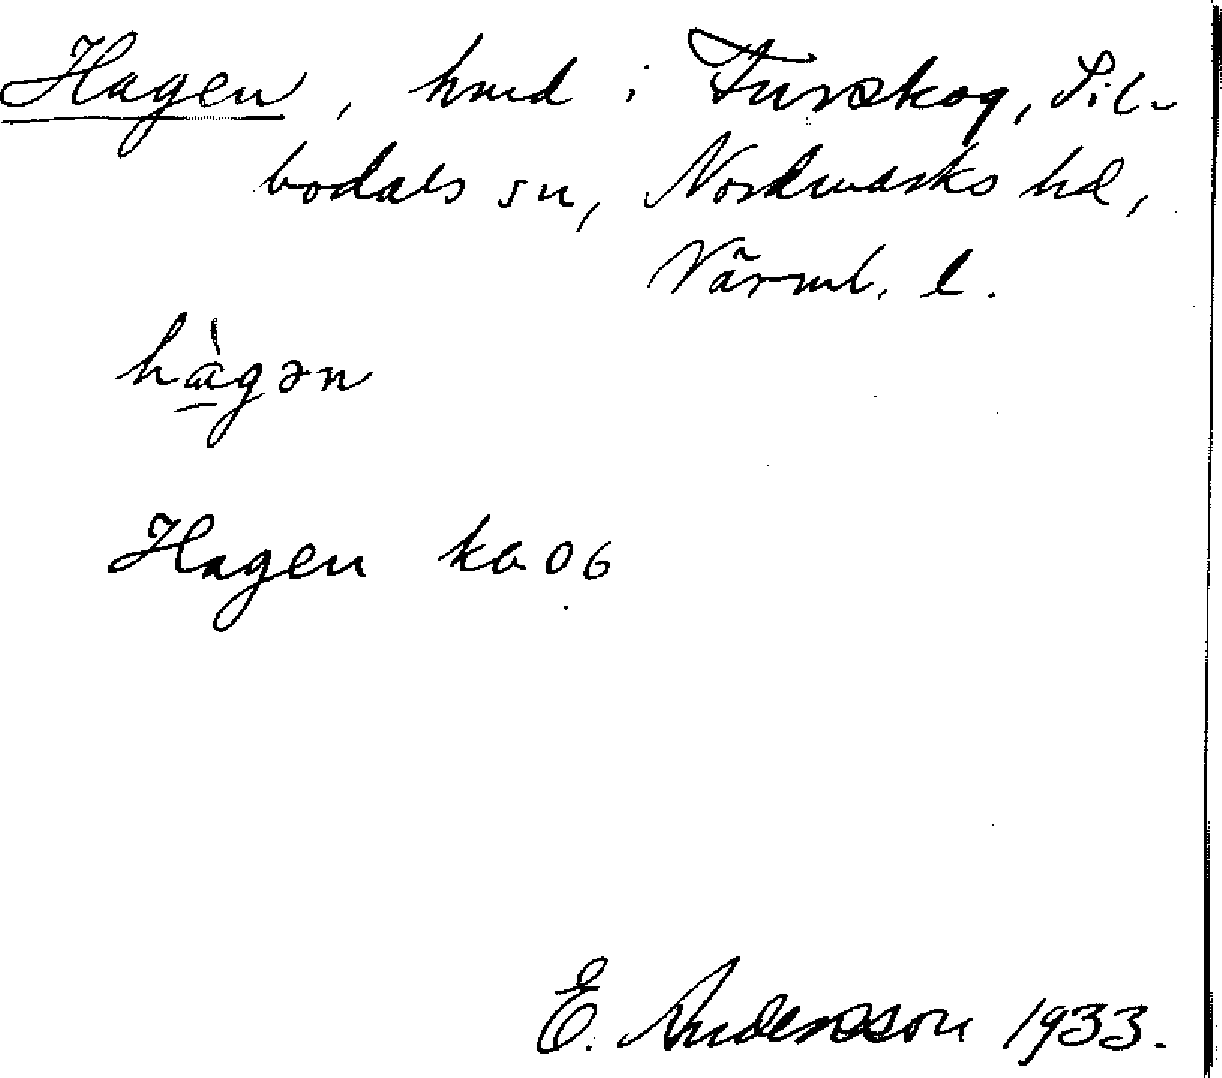 Hagen, hmd i Furskog, Sil-
bodals sn, Nordmarks hd,
Värml. l.
hàgən
Hagen ka 06
E. Andersson 1933.